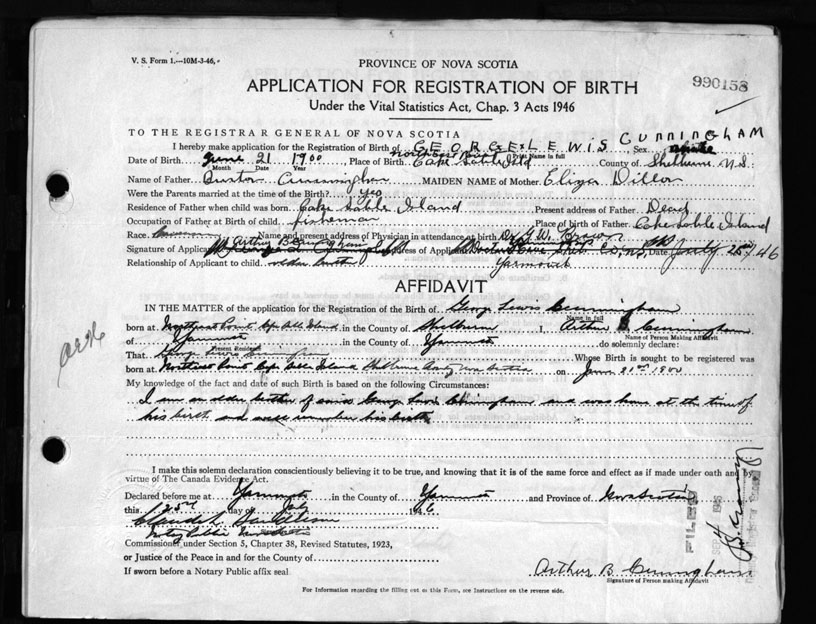 V. S. Form 1.—10M-3-46.
PROVINCE OF NOVA SCOTIA
APPLICATION FOR REGISTRATION OF BIRTH
990158
Under the Vital Statistics Act, Chap. 3 Acts 1946
TO THE REGISTRAR GENERAL OF NOVA SCOTIA
I hereby make application for the Registration of Birth of GEORGE LEWIS CUNNINGHAM Sex
Print Name in full
Date of Birth June 21 1900 Place of Birth Cape Sable Isld County of Shelburne N.S.
Month Date Year
Name of Father Cunningham MAIDEN NAME of Mother Eliza Dillon
Were the Parents married at the time of the Birth? Yes
Residence of Father when child was born Cape Sable Island Present address of Father Dead
Occupation of Father at Birth of child fisherman Place of birth of Father Cape Sable Island
Race Name and present address of Physician in attendance at birth Dr
Signature of Applicant Arthur B Cunningham Address of Applicant Date July 25 / 46
Relationship of Applicant to child older brother Yarmouth
AFFIDAVIT
IN THE MATTER of the application for the Registration of Birth of George Lewis Cunningham
Name in full
born at Northeast Point Cape Sable Island in the County of Shelburne I, Arthur B Cunningham
Name of Person Making Affidavit
of Yarmouth in the County of Yarmouth do solemnly declare:
Present Residence
That George Lewis Cunningham Whose Birth is sought to be registered was
born at Northeast Point Cape Sable Island Shelburne County Nova Scotia on June 21st 1900
My knowledge of the fact and date of such Birth is based on the following Circumstances:
I am an older brother of George Lewis Cunningham and was home at the time of
his birth and well remember his birth
I make this solemn declaration conscientiously believing it to be true, and knowing that it is of the same force and effect as if made under oath and by
virtue of The Canada Evidence Act.
Declared before me at Yarmouth in the County of Yarmouth and Province of Nova Scotia
this 25th day of July 1946
Notary Public
Commissioner under Section 5, Chapter 38, Revised Statutes, 1923,
or Justice of the Peace in and for the County of
If sworn before a Notary Public affix seal
Arthur B Cunningham
Signature of Person making Affidavit
For Information regarding the filling out of this Form, see Instructions on the reverse side.
FILED